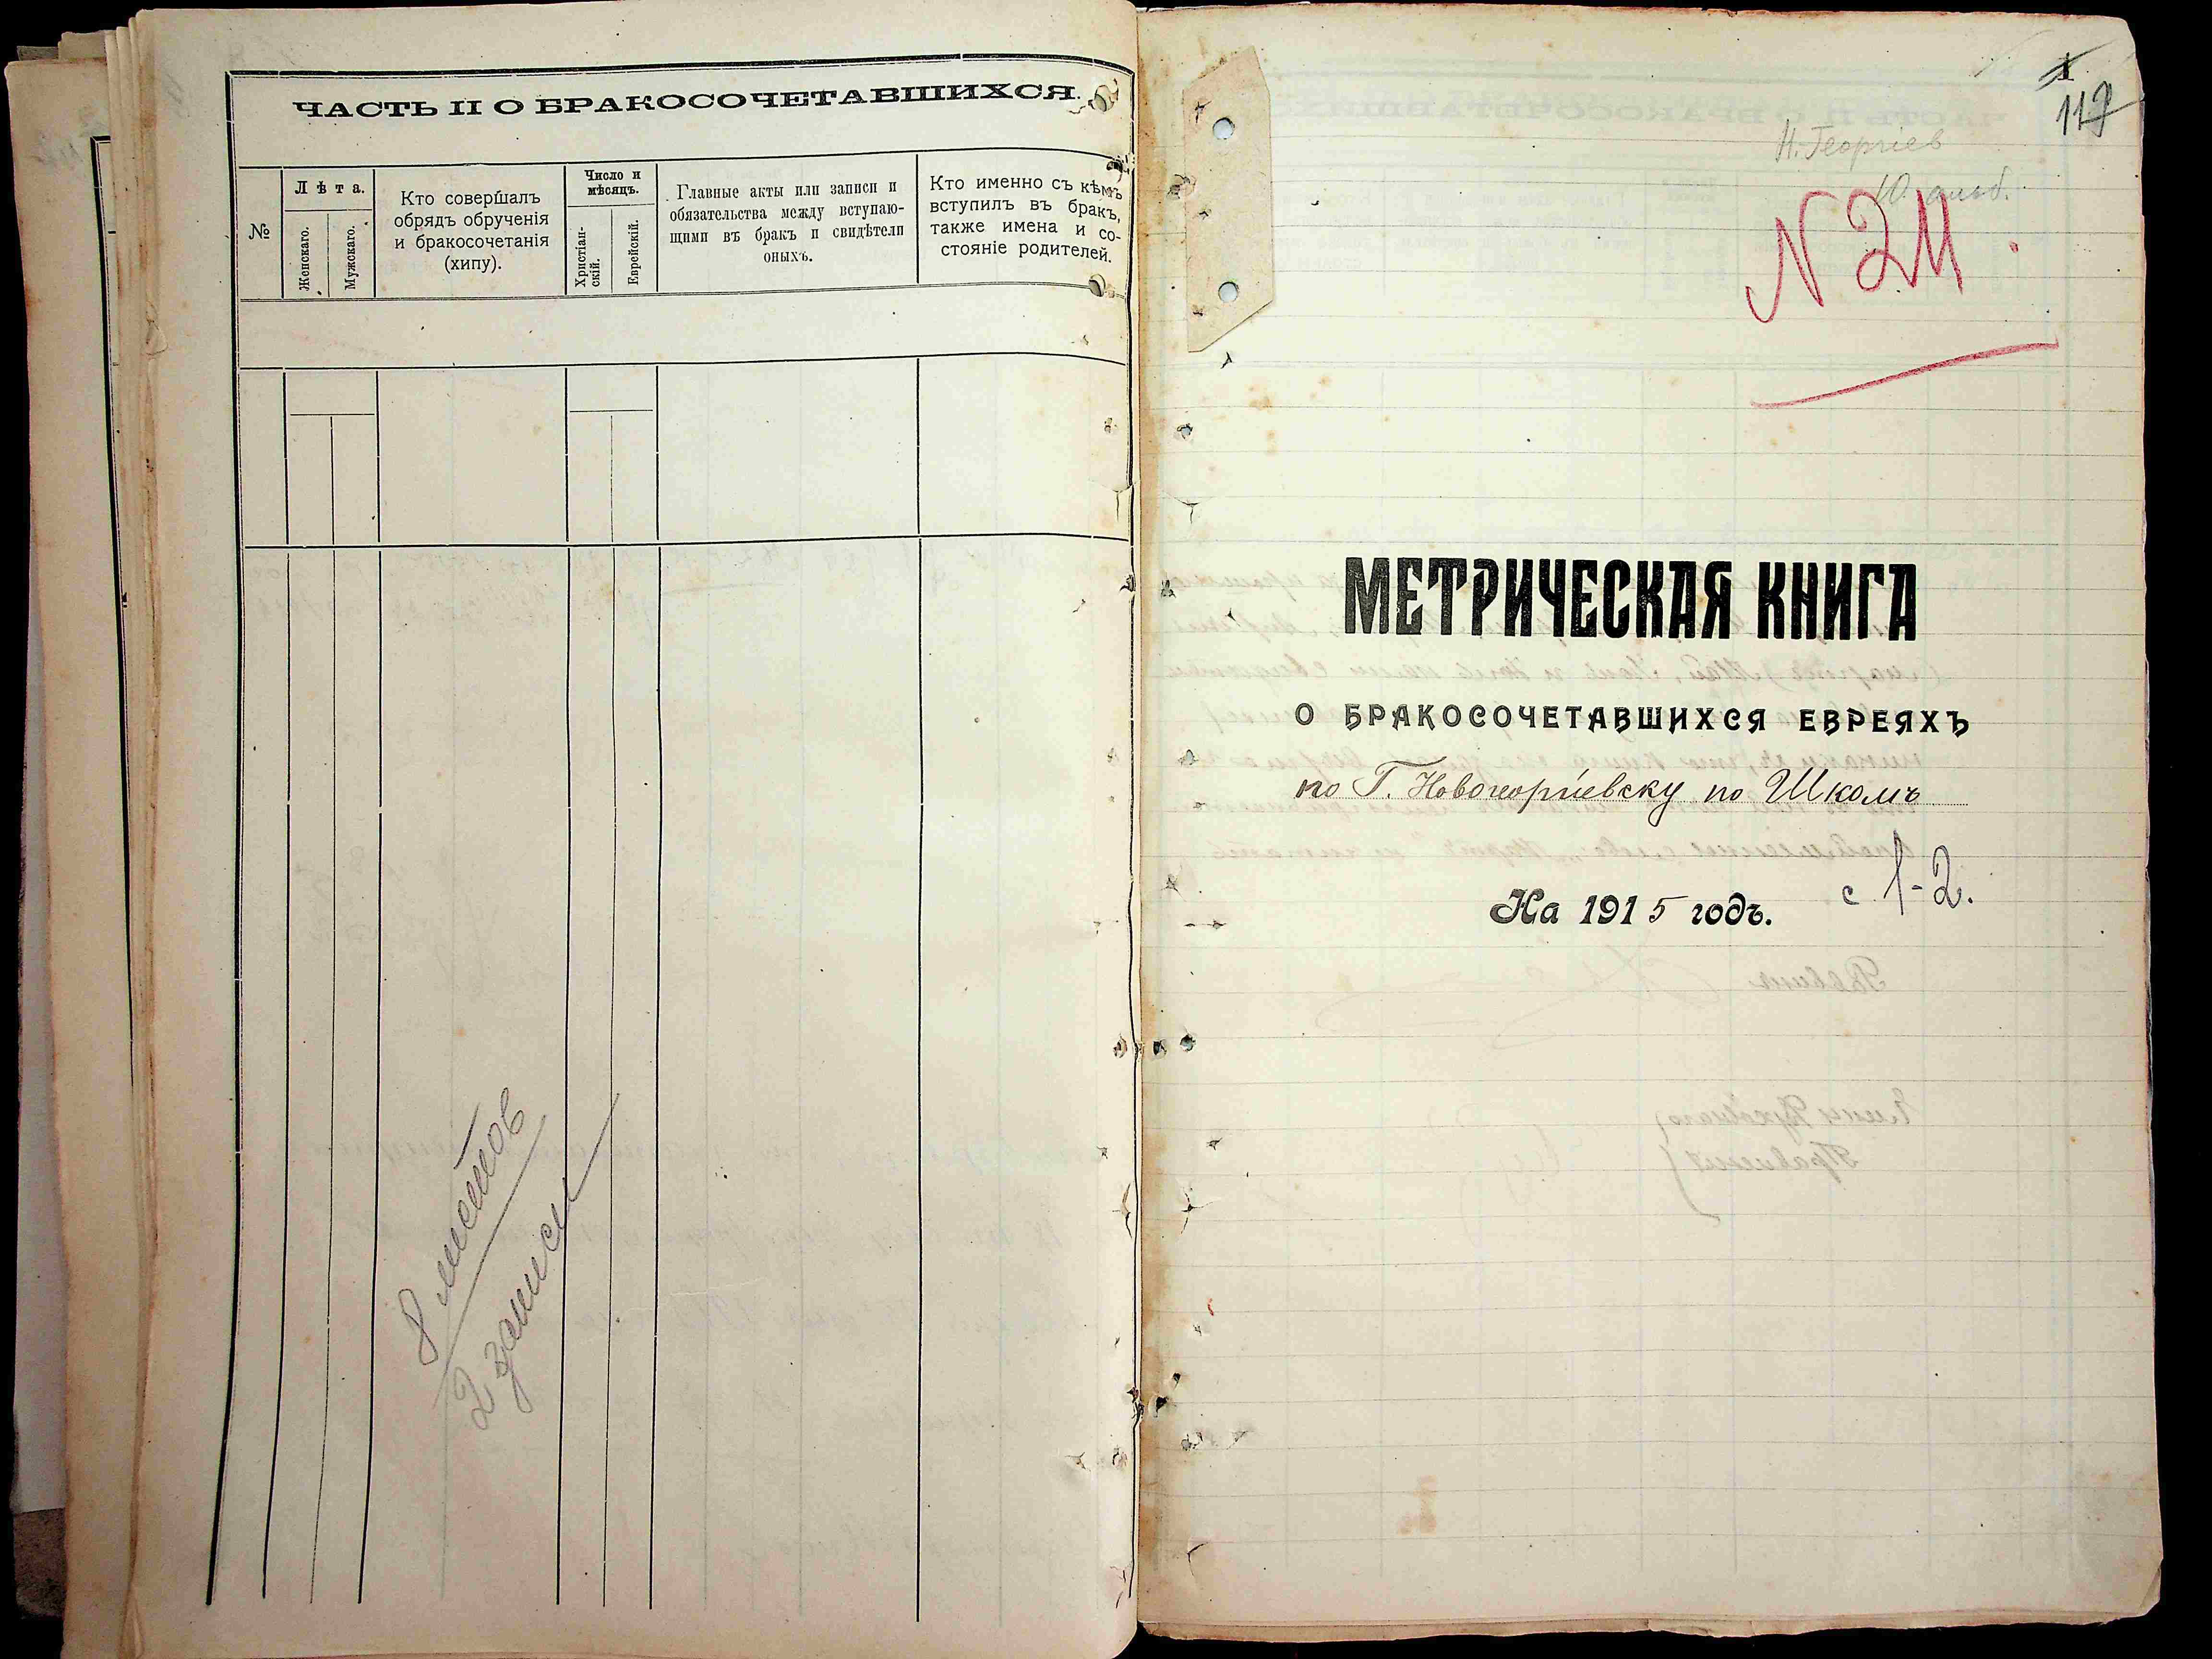 ЧАСТЬ II О БРАКОСОЧЕТАВШИХСЯ.
№
Лѣта.
Женскаго.
Мужскаго.
Кто совершалъ
обрядъ обрученія
и бракосочетанія
(хипу).
Число и
мѣсяцъ.
Христіан-
скій.
Еврейскій.
Главные акты или записи и
обязательства между вступаю-
щими въ бракъ и свидѣтели
оныхъ.
Кто именно съ кѣмъ
вступилъ въ бракъ,
также имена и со-
стояніе родителей.
8 листов
2 записи
1
117
Н. Георгіев
10
N 211
МЕТРИЧЕСКАЯ КНИГА
О БРАКОСОЧЕТАВШИХСЯ ЕВРЕЯХЪ
по Г. Новогеоргіевску по
На 1915 годъ.
с 1-2.